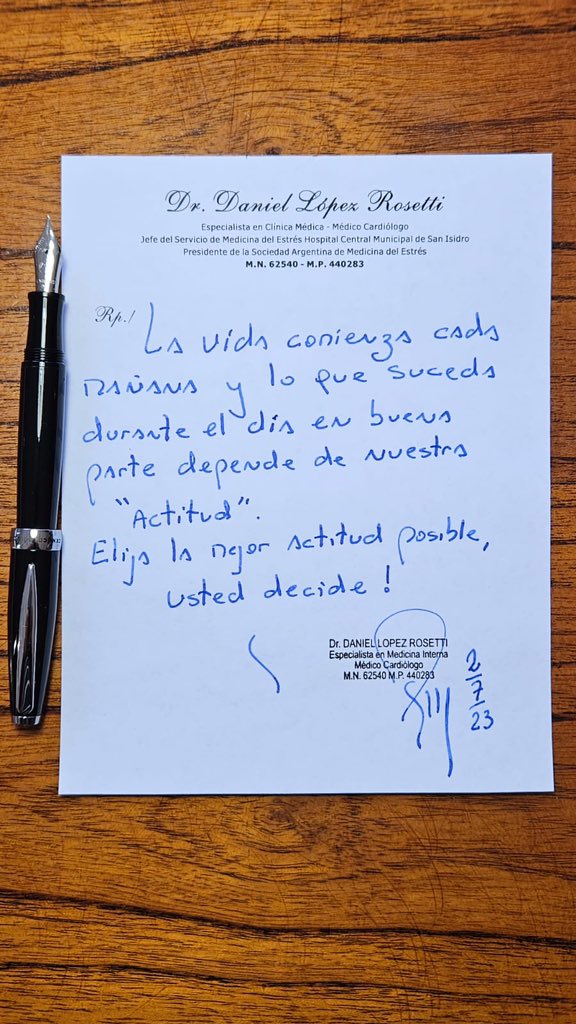 Dr. Daniel López Rosetti
Especialista en Clínica Médica - Médico Cardiólogo
Jefe del Servicio de Medicina del Estrés Hospital Central Municipal de San Isidro
Presidente de la Sociedad Argentina de Medicina del Estrés
M.N. 62540 - M.P. 440283
Rp./
La vida comienza cada
mañana y lo que suceda
durante el día en buena
parte depende de nuestra
"Actitud".
Elija la mejor actitud posible,
usted decide!
Dr. DANIEL LOPEZ ROSETTI
Especialista en Medicina Interna
Médico Cardiólogo
M.N. 62540 M.P. 440283
2/7/23